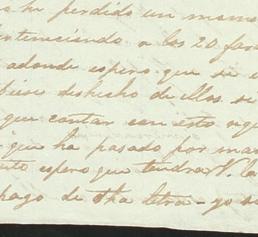 ha perdido un mome
intenciando a los 20 far
adonde espero que se
biese deshecho de ellos se
que contar con esto
que ha pasado por ma
espero que tendra V. la
pago de dha letra - yo